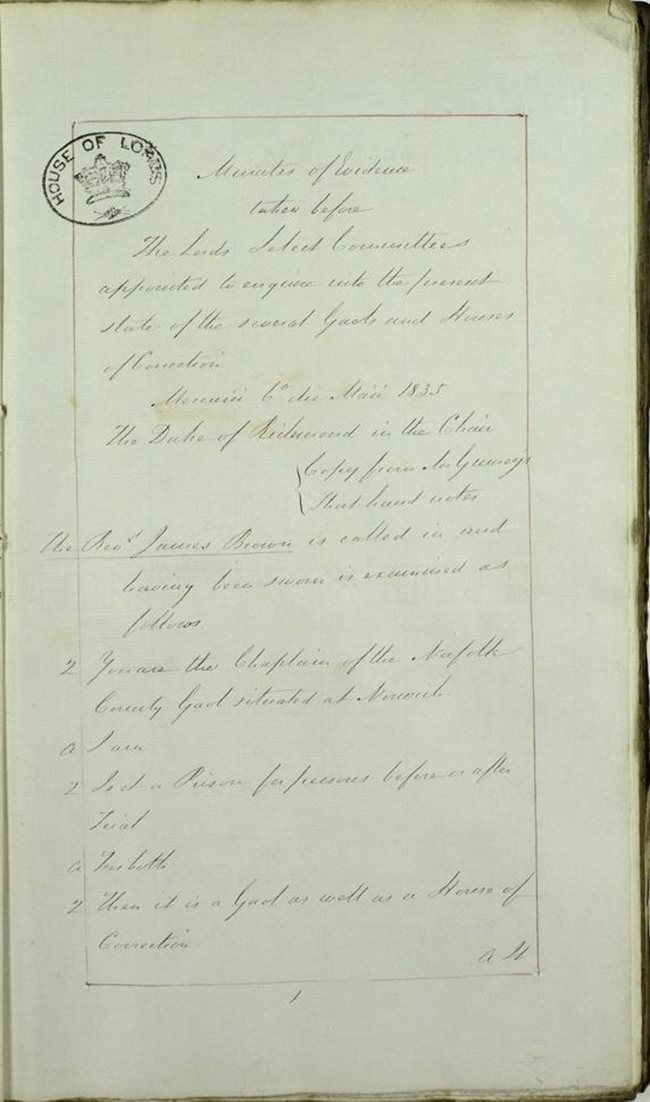 HOUSE OF LORDS
Minutes of Evidence
taken before
The Lords Select Committees
appointed to enquire into the present
state of the several Gaols and Houses
of Correction
Mercurii 6º die Maii 1835
The Duke of Richmond in the Chair
Copy from Mr Gurneys
Short hand notes
The Revd James Brown is called in and
having been sworn is examined as
follows
Q You are the Chaplain of the Norfolk
County Gaol situated at Norwich
A I am
Q Is it a Prison for persons before or after
Trial
A For both
Q Then it is a Gaol as well as a House of
Correction
A It
1